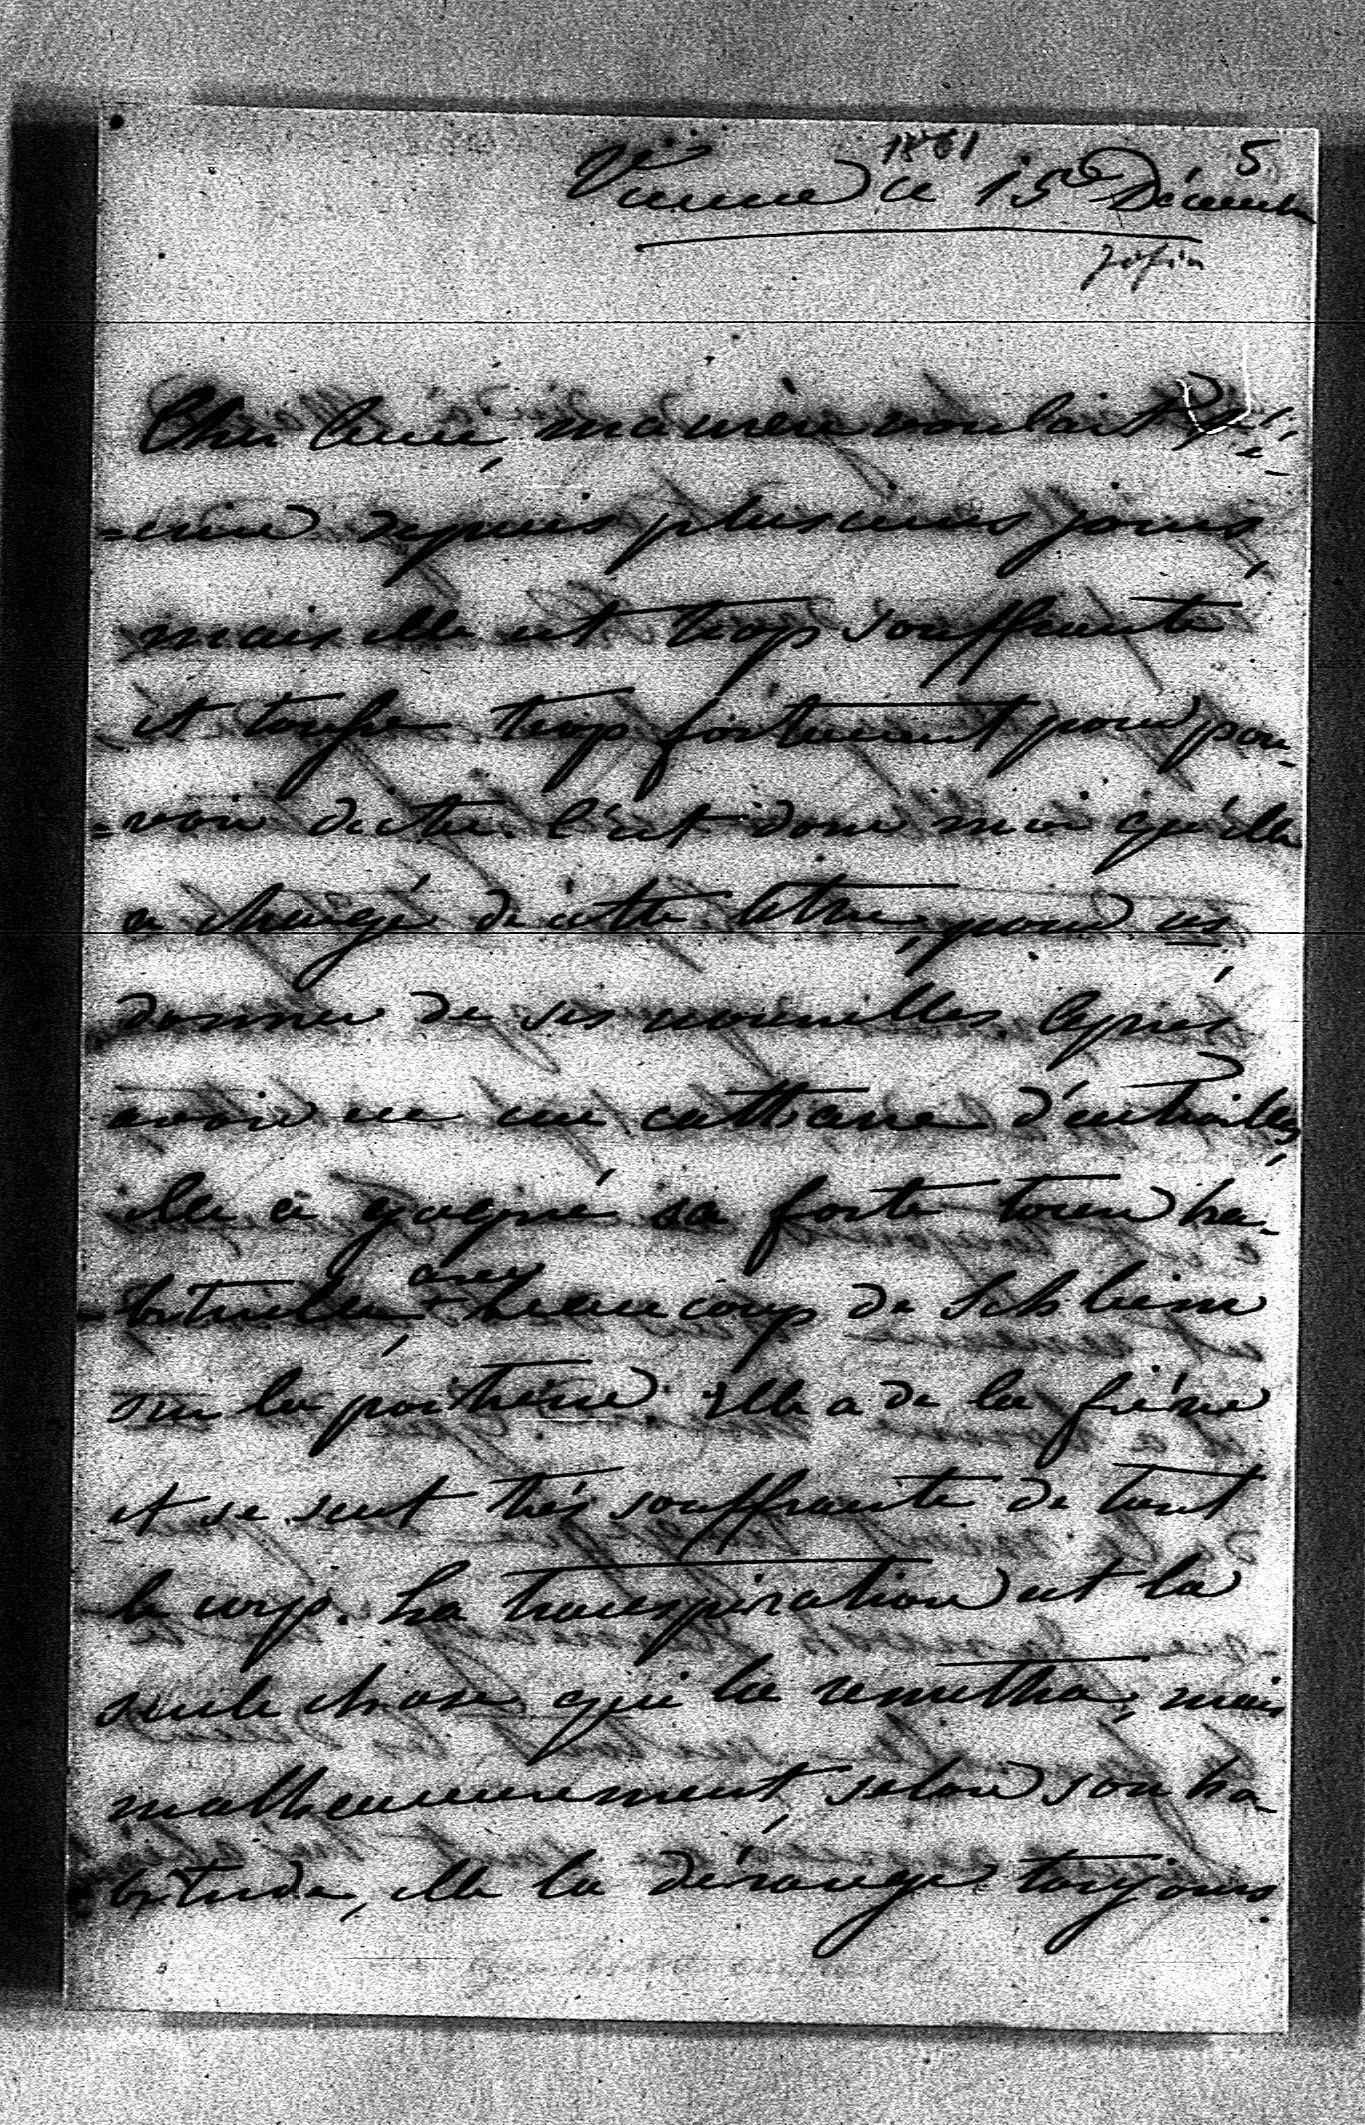 1861
5
Vienne ce 15 Décembre
Cher ami, ma mère voulait é-
=crire depuis plusieurs jours,
mais elle est trop souffrante
et tousse trop fortement pour pou-
=voir dicter. C'est donc moi qu'elle
a chargé de cette lettre, pour vs
donner de ses nouvelles. Après
avoir eu une cattharre d'entrailles,
elle a gagné sa forte toux ha-
=bituelle, avec beaucoup de Schleim
sur la poitrine. Elle a de la fièvre
et se sent très souffrante de tout
le corp. La transpiration est la
seule chose qui la remettra, mais
malheureusement, selon son ha-
=bitude, elle la dérange toujours.